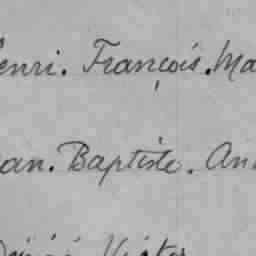 enri. François. Ma
an. Baptiste. An
Victor